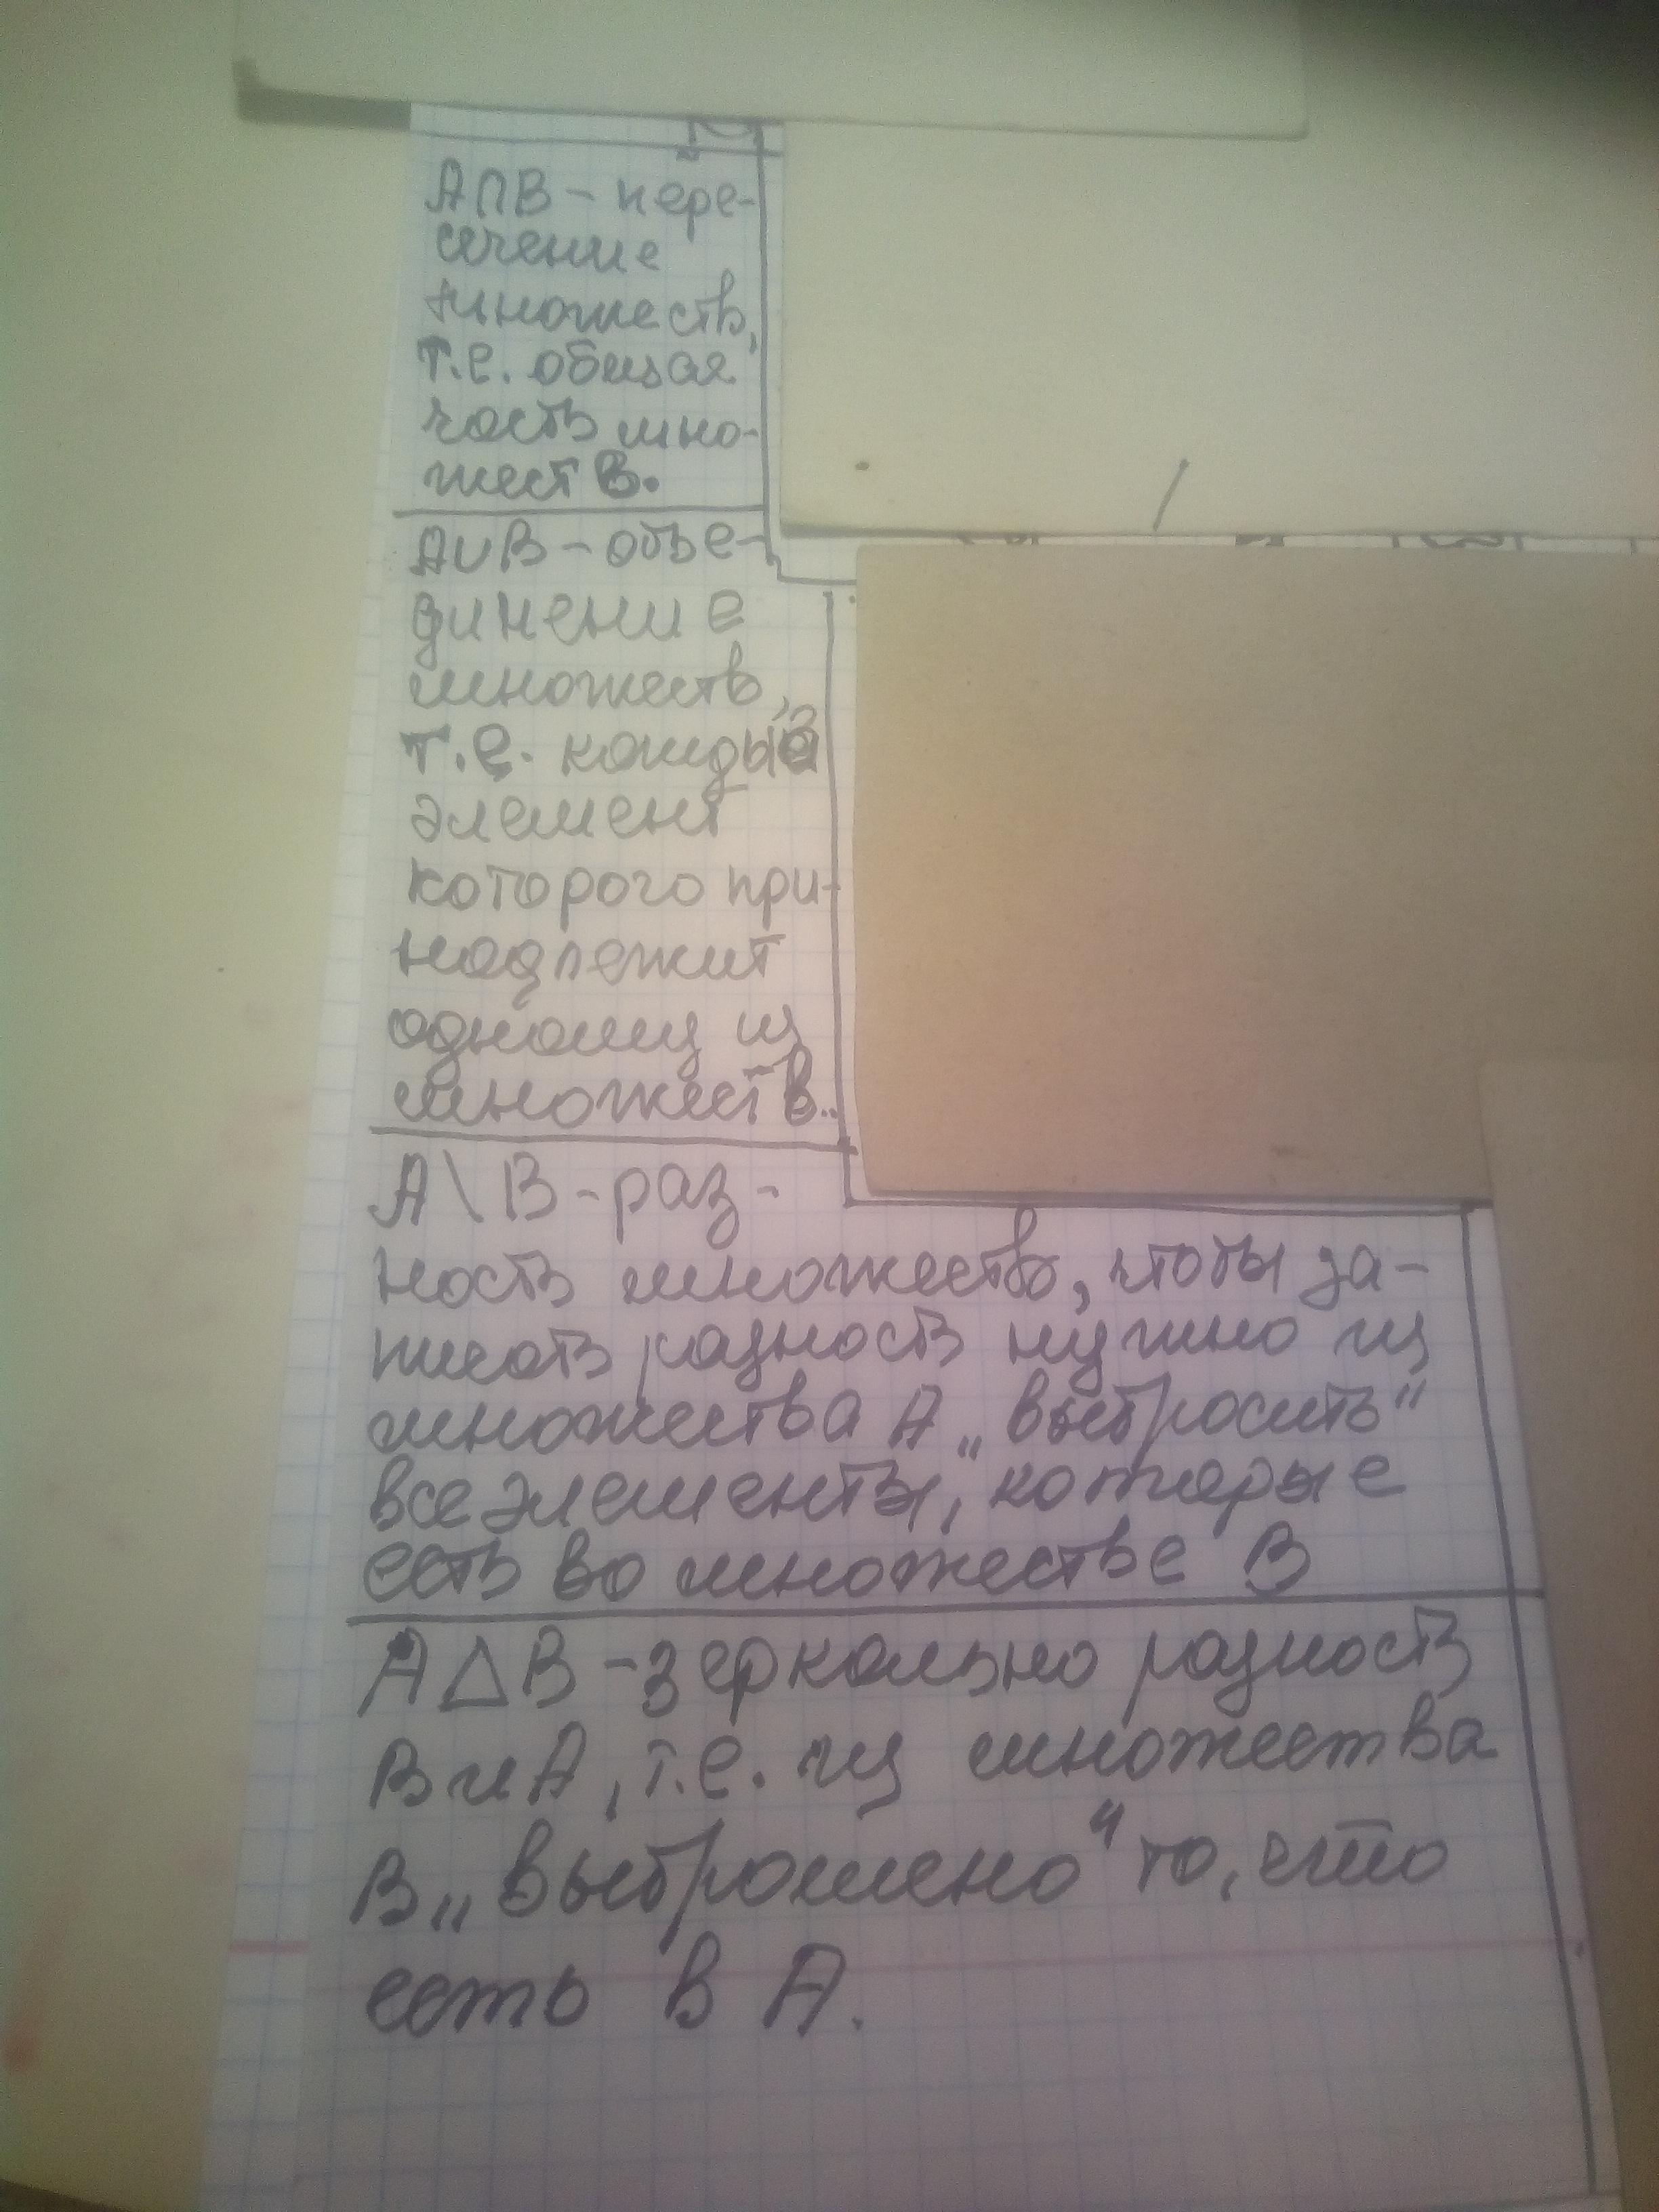 A∩B – пере-
сечение
множеств,
т.е. общая
часть мно-
жеств.
A∪B – объе-
динение
множеств,
т.е. каждый
элемент
которого при-
надлежит
одному из
множеств..
A\B – раз-
ность множеств, чтобы за-
писать разность нужно из
множества A „выбросить“
все элементы, которые
есть во множестве B
A△B – зеркально разность
B и A, т.е. из множества
B „выброшено“ то, что
есть в A.